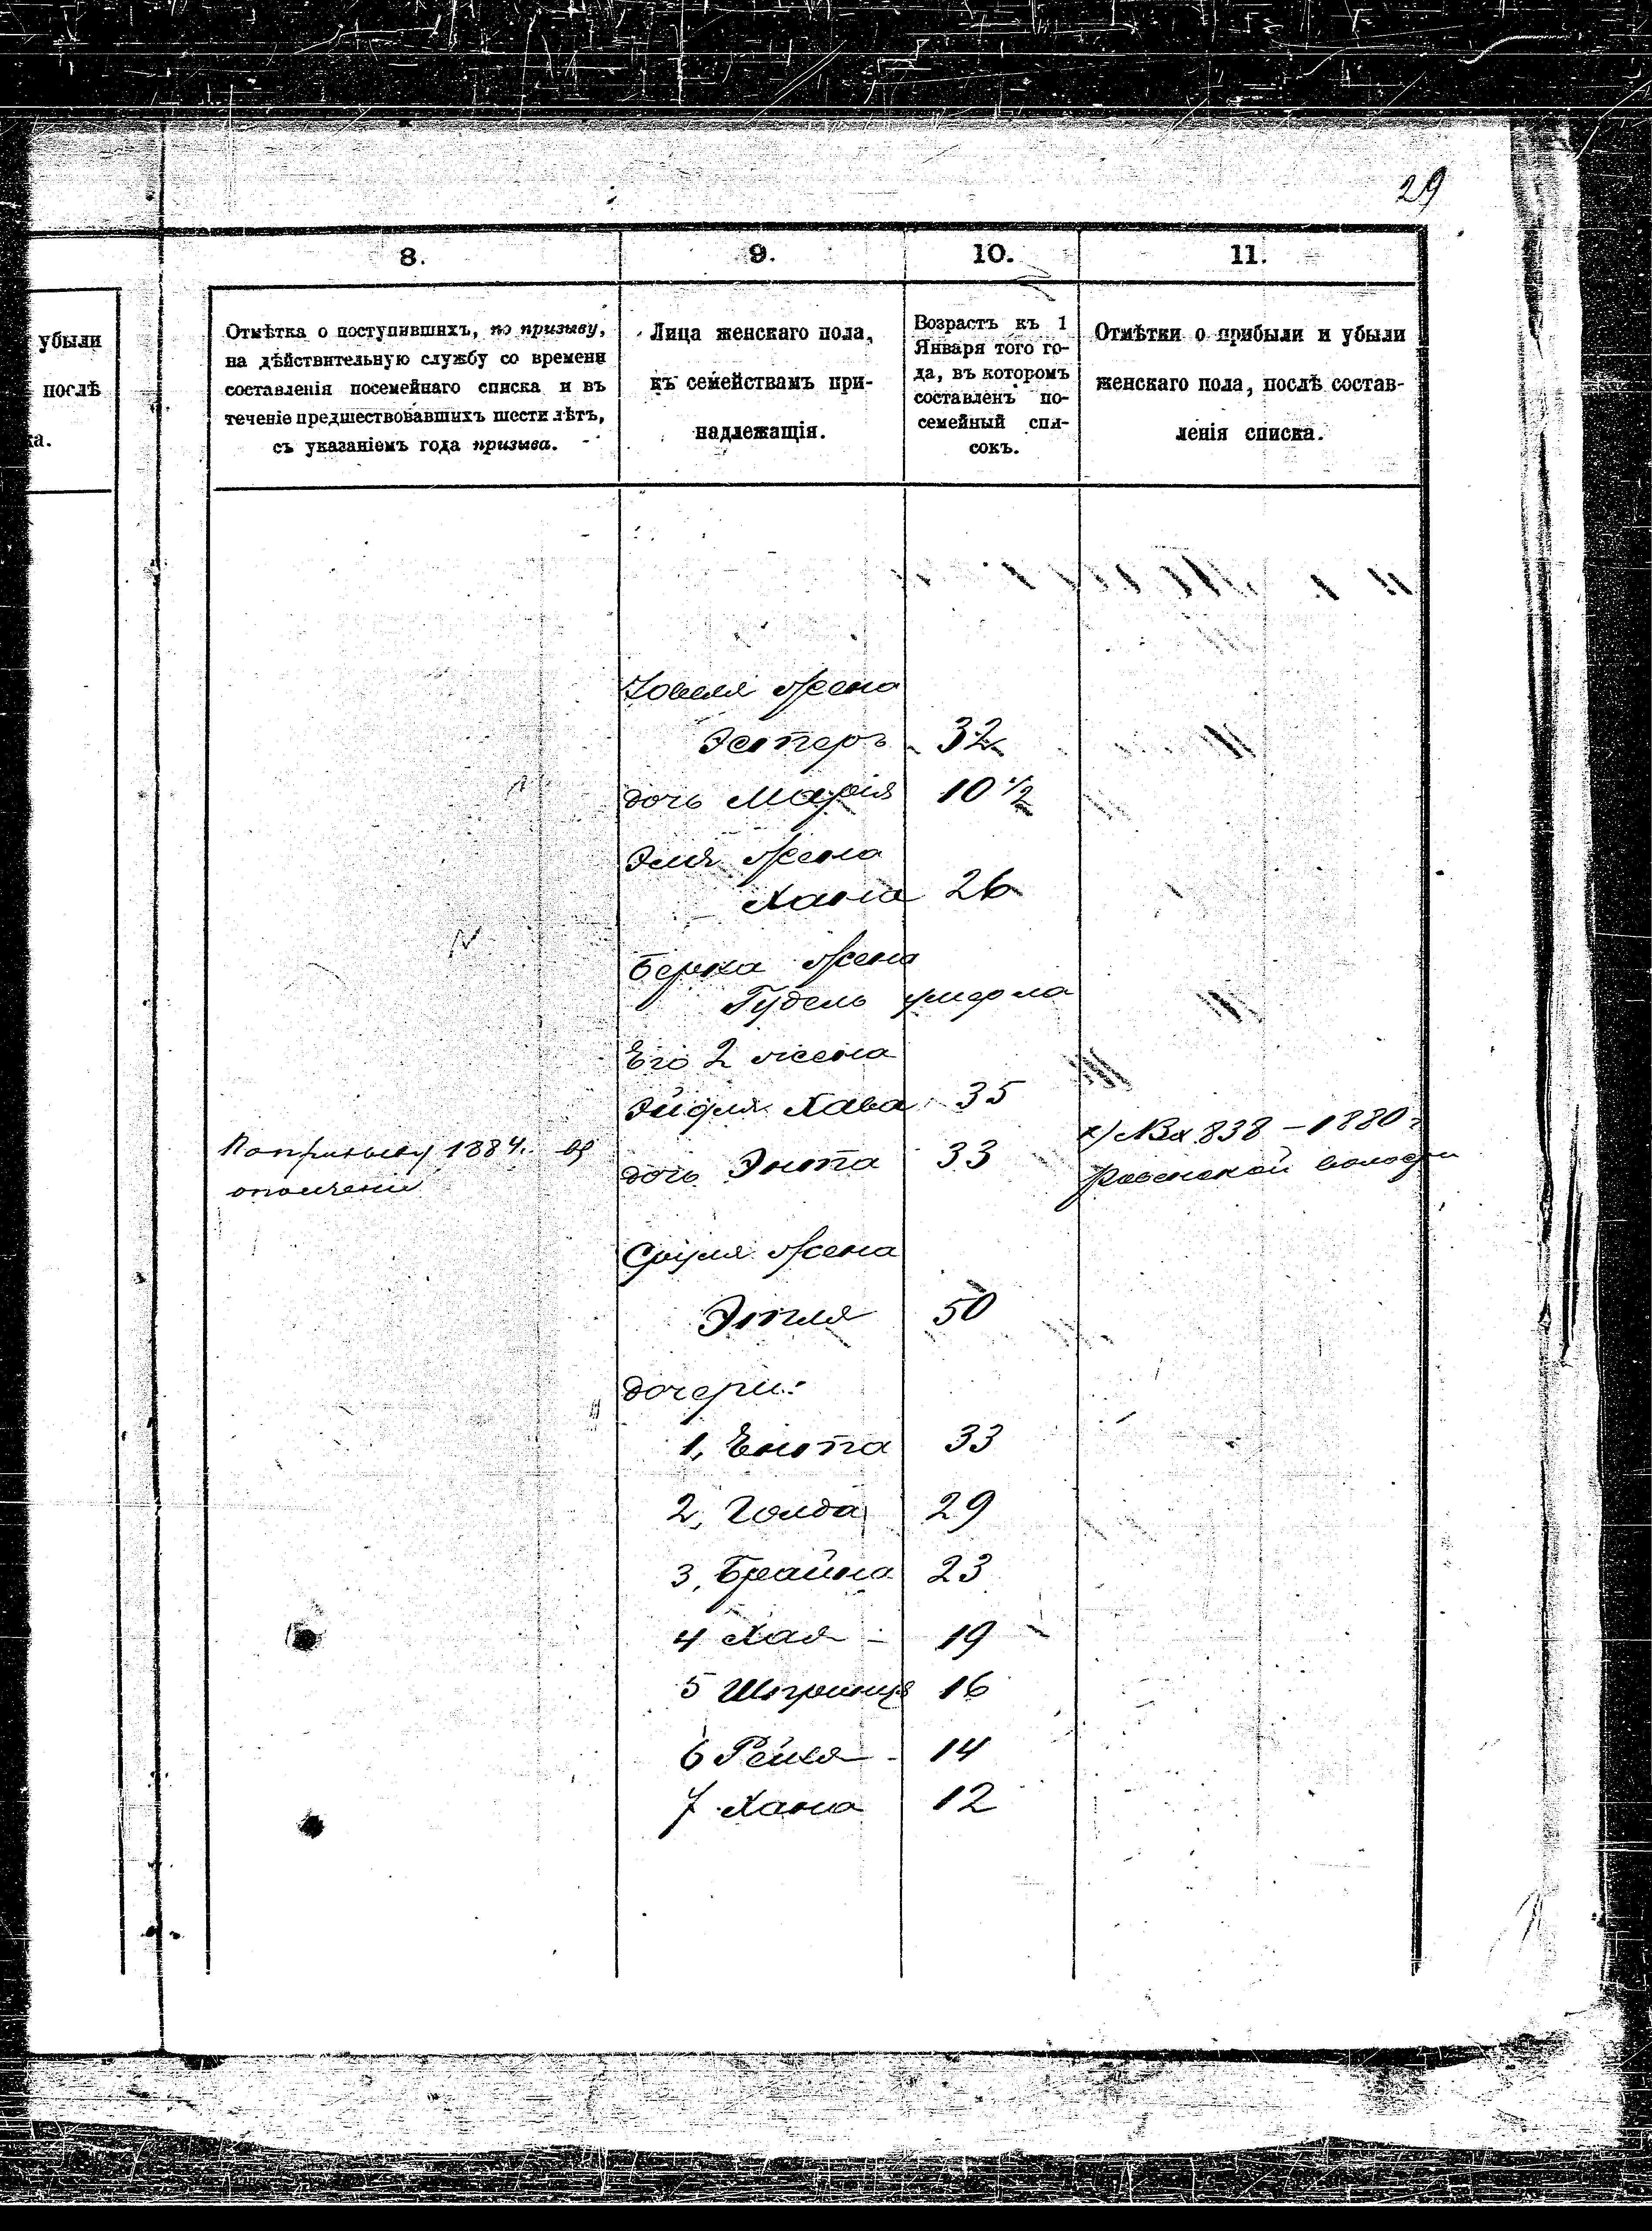 29
8.
9.
10.
11.
убыли
послѣ
ка.
Отмѣтка о поступившихъ, по призыву,
на дѣйствительную службу со времени
составленія посемейнаго списка и въ
теченіе предшествовавшихъ шести лѣтъ,
съ указаніемъ года призыва.
Лица женскаго пола,
къ семействамъ при-
надлежащія.
Возрастъ къ 1
Января того го-
да, въ которомъ
составленъ по-
семейный спи-
сокъ.
Отмѣтки о прибыли и убыли
женскаго пола, послѣ состав-
ленія списка.
жена
Эстеръ 32
дочь Марія 10 1/2
Эля жена
Хана 26
Берка жена
Гудель умерла
Его 2 жена
Хава 35
По призыву 1884 г. въ
ополчение
дочь Энта 33
х) № Вх 838 – 1880 г
волости
Сруля жена
Этля 50
дочери:
1, Ента 33
2, Голда 29
3, Брайна 23
4 Хая – 19
5 16
6 Рейзя – 14
7 Хана 12